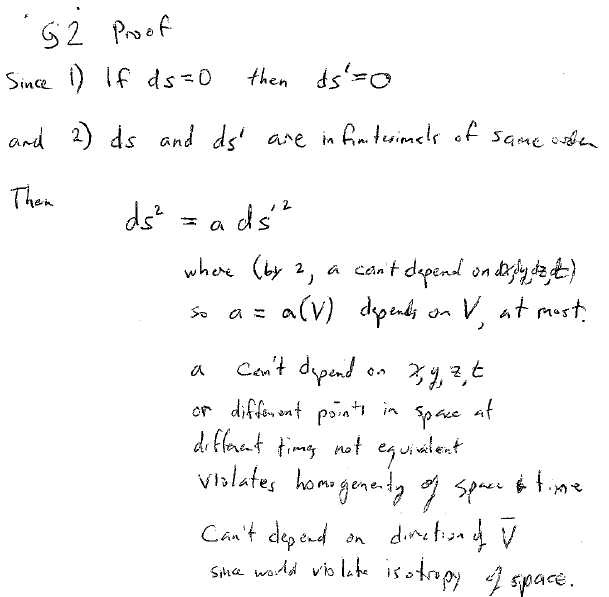 §2 Proof
Since 1) If ds=0 then ds'=0
and 2) ds and ds' are infinitesimals of same order
Then
ds² = a ds'²
where (by 2, a can't depend on dx,dy,dz,dt)
so a = a(V) depends on V, at most.
a can't depend on x,y,z,t
or different points in space at
different times not equivalent
violates homogeneity of space & time
Can't depend on direction of V̄
since would violate isotropy of space.